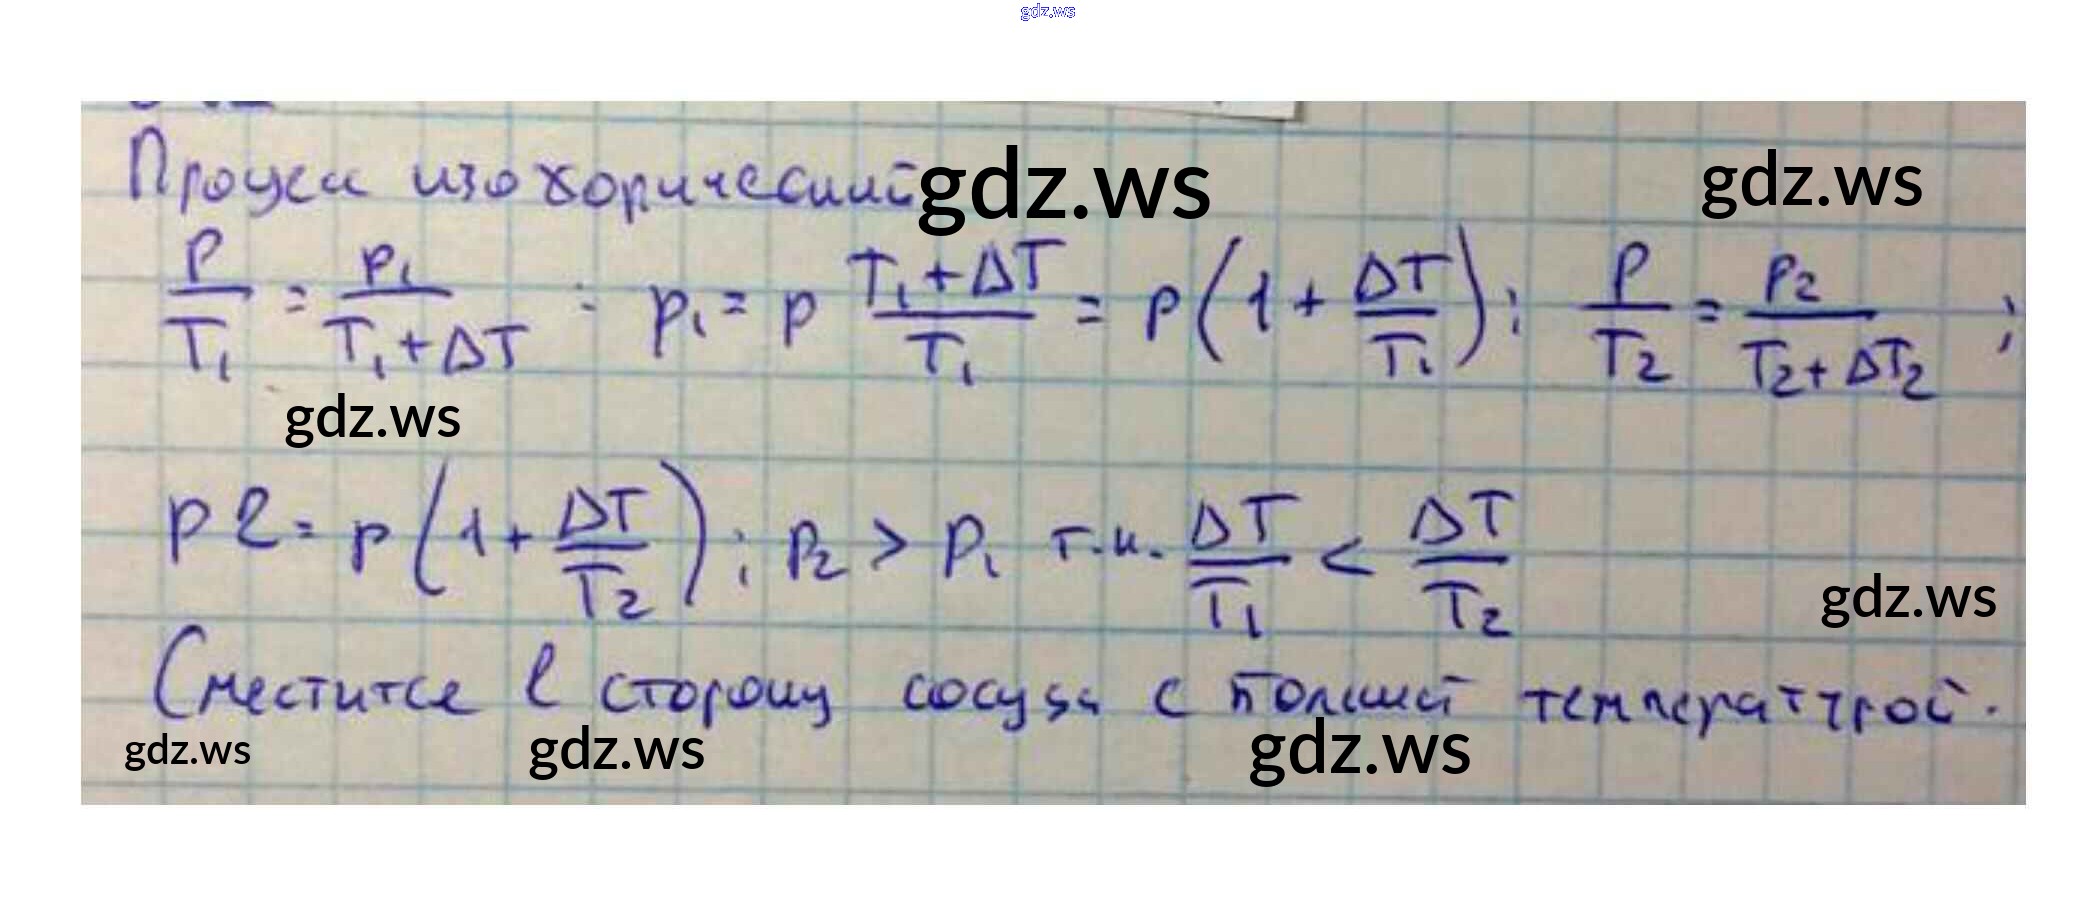 gdz.ws
Процесс изохорический gdz.ws gdz.ws
P/T₁ = p₁/(T₁+ΔT) ; p₁ = p (T₁+ΔT)/T₁ = p(1+ΔT/T₁); P/T₂ = P₂/(T₂+ΔT₂) ;
gdz.ws
p2 = p(1+ΔT/T₂); P₂ > P₁ т.к. ΔT/T₁ < ΔT/T₂
gdz.ws
Сместится в сторону сосуда с большей температурой.
gdz.ws gdz.ws gdz.ws